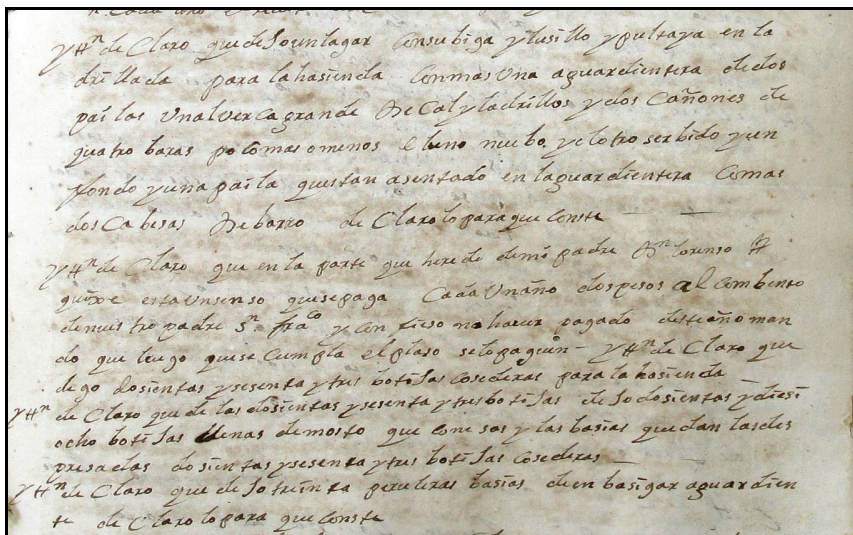 Ytn de Claro que deJo un lagar Con su biga y tusillo y pultaya en la
drillada para la hasienda Con mas Una aguardientera de dos
pailas Un alverca grande De Cal y ladrillos y dos Cañones de
quatro baras poco mas o menos el uno nuebo, y el otro serbido y un
fondo y una paila questan asentado en laguardientera Comas
dos Cabesas De barro de Claro lo para que Conste
Ytn de Claro que en la parte que herede de mi padre Dn lorenso
esta Un senso que se paga Cada Un año dos pesos al Combento
de nuestro padre Sn franco y Con fieso no haver pagado deste año man
do que luego que se Cumpla el plaso se lo paguen - Ytn de Claro que
dego dosientas y sesenta y tres botiJas Cosederas para la hasienda
Ytn de Claro que de las dosientas y sesenta y tres botiJas deJo dosientas y diesi
ocho botiJas llenas de mosto que Con esas y las basias quedan las es
presadas dosientas y sesenta y tres botiJas Cosederas
Ytn de Claro que deJo treinta peruleras basias de en basigar aguardien
te de Claro lo para que Conste